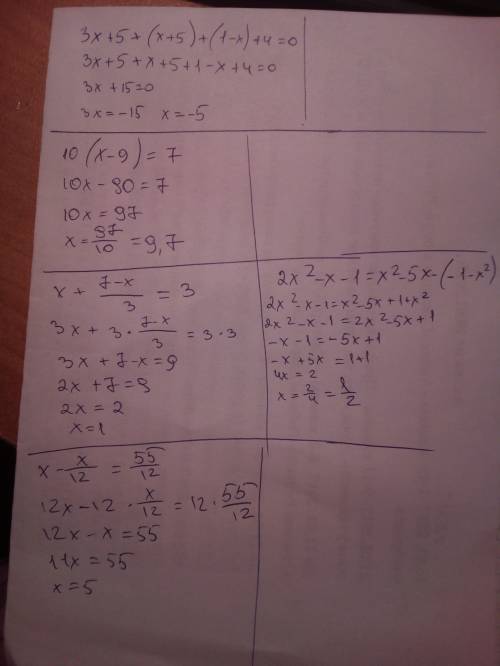 3x+5+(x+5)+(1-x)+4=0
3x+5+x+5+1-x+4=0
3x+15=0
3x=-15 x=-5
10(x-9)=7
10x-90=7
10x=97
x=97/10=9,7
x+(7-x)/3=3
3x+3·(7-x)/3=3·3
3x+7-x=9
2x+7=9
2x=2
x=1
2x²-x-1=x²-5x-(-1-x²)
2x²-x-1=x²-5x+1+x²
2x²-x-1=2x²-5x+1
-x-1=-5x+1
-x+5x=1+1
4x=2
x=2/4=1/2
x-x/12=55/12
12x-12·x/12=12·55/12
12x-x=55
11x=55
x=5